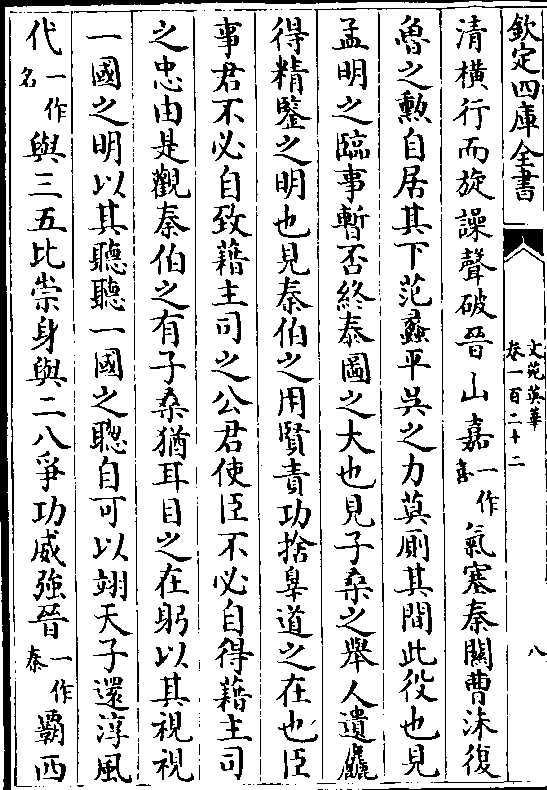 欽定四庫全書
文苑英華
卷一百二十二
八
清橫行而旋譟聲破晉山嘉一作喜氣塞秦關曹沬復
魯之勲自居其下范蠡平吳之力莫厠其間此役也見
孟明之臨事暫否終泰圖之大也見子桑之舉人遺麤
得精鑒之明也見秦伯之用賢責功捨辠道之在也臣
事君不必自致藉主司之公君使臣不必自得藉主司
之忠由是觀秦伯之有子桑猶耳目之在躬以其視視
一國之明以其聽聽一國之聰自可以翊天子還淳風
代一作名與三五比崇身與二八爭功威強晉一作秦霸西